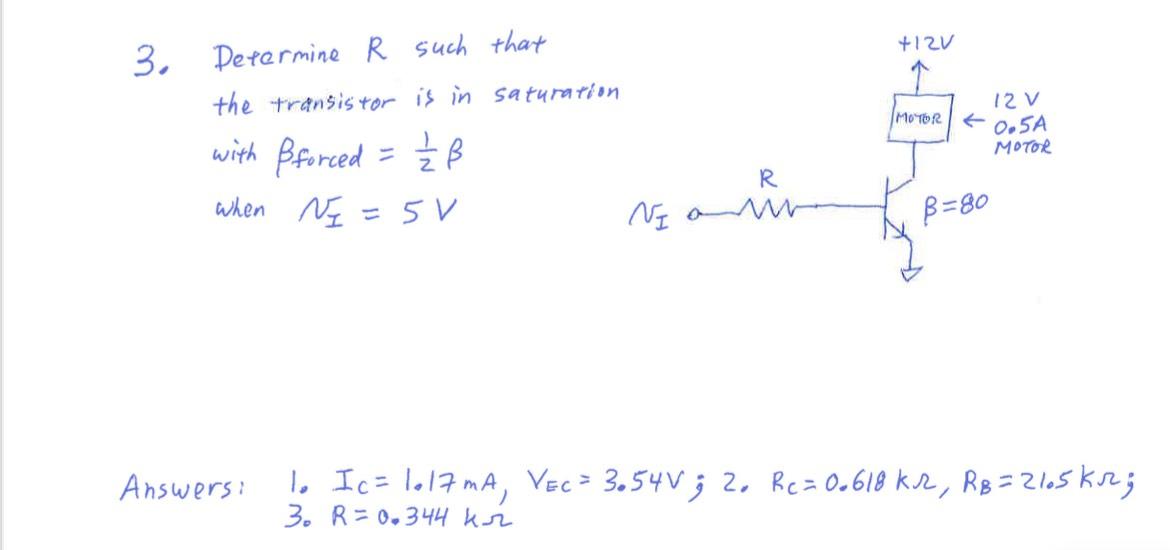 3. Determine R such that
the transistor is in saturation
with βforced = 1/2 β
when 𝓋I = 5 V
+12V
MOTOR
← 12 V
0.5A
MOTOR
R
𝓋I
β=80
Answers: 1. IC = 1.17 mA, VEC = 3.54V; 2. RC = 0.618 kΩ, RB = 21.5 kΩ;
3. R = 0.344 kΩ